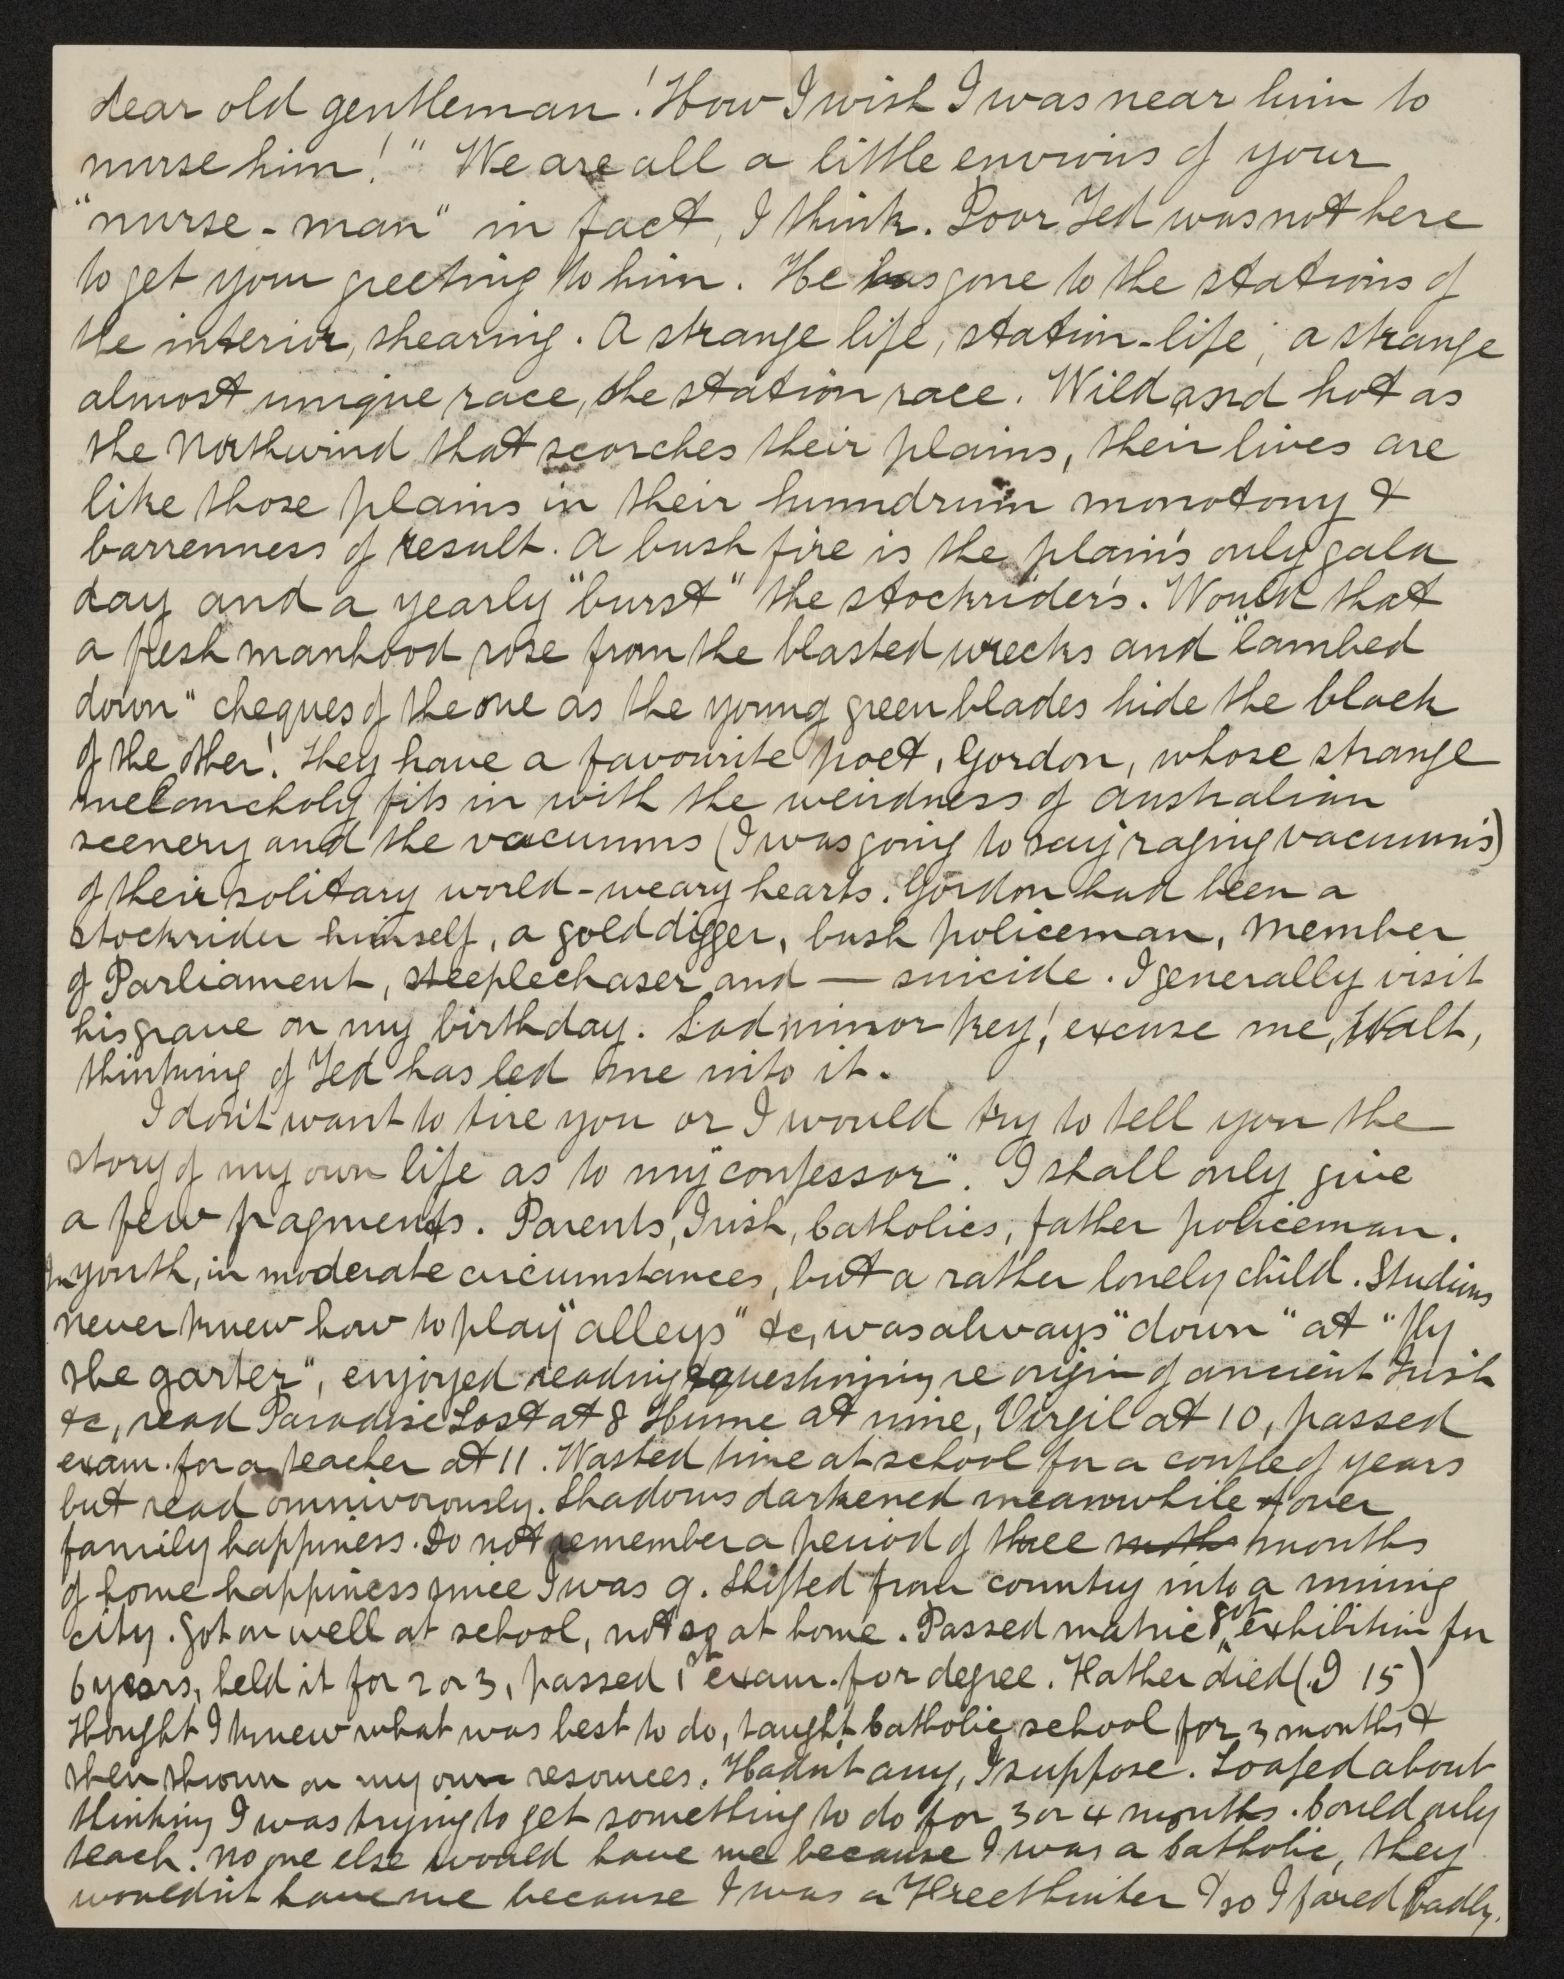 dear old gentleman! How I wish I was near him to
nurse him!" We are all a little envious of your
"nurse-man" in fact, I think. Poor Ted was not here
to get your greeting to him. He has gone to the stations of
the interior, shearing. A strange life, station-life; a strange
almost unique race, the station race. Wild and hot as
the Northwind that scorches their plains, their lives are
like those plains in their humdrum monotony &
barrenness of result. A bush fire is the plain's only gala
day and a yearly "burst" the stockrider's. Would that
a fresh manhood rose from the blasted wrecks and "lambed
down" cheques of the one as the young green blades hide the black
of the other! They have a favourite poet, Gordon, whose strange
melancholy fits in with the weirdness of Australian
scenery and the vacuums (I was going to say 'raging vacuums')
of their solitary world-weary hearts. Gordon had been a
stockrider himself, a gold digger, bush policeman, member
of Parliament, steeplechaser and — suicide. I generally visit
his grave on my birthday. Sad minor key! excuse me, Walt,
thinking of Ted has led me into it.
I don't want to tire you or I would try to tell you the
story of my own life as to my "confessor". I shall only give
a few fragments. Parents, Irish, Catholics, father policeman.
In youth, in moderate circumstances, but a rather lonely child. Studious
never knew how to play "alleys" &c, was always "down" at "fly
the garter", enjoyed reading & questioning re origin of ancient Irish
&c, read Paradise Lost at 8 Hume at nine, Virgil at 10, passed
exam. for a teacher at 11. Wasted time at school for a couple of years
but read omnivorously. Shadows darkened meanwhile over
family happiness. Do not remember a period of three moths months
of home happiness since I was 9. Shifted from country into a mining
city. Got on well at school, not so at home. Passed matric & got exhibition for
6 years, held it for 2 or 3, passed 1st exam. for degree. Father died (I 15)
Thought I knew what was best to do, taught Catholic school for 3 months &
then thrown on my own resources. Hadn't any, I suppose. Loafed about
thinking I was trying to get something to do for 3 or 4 months. Could only
teach. No one else would have me because I was a Catholic, they
wouldn't have me because I was a Freethinker & so I fared badly.